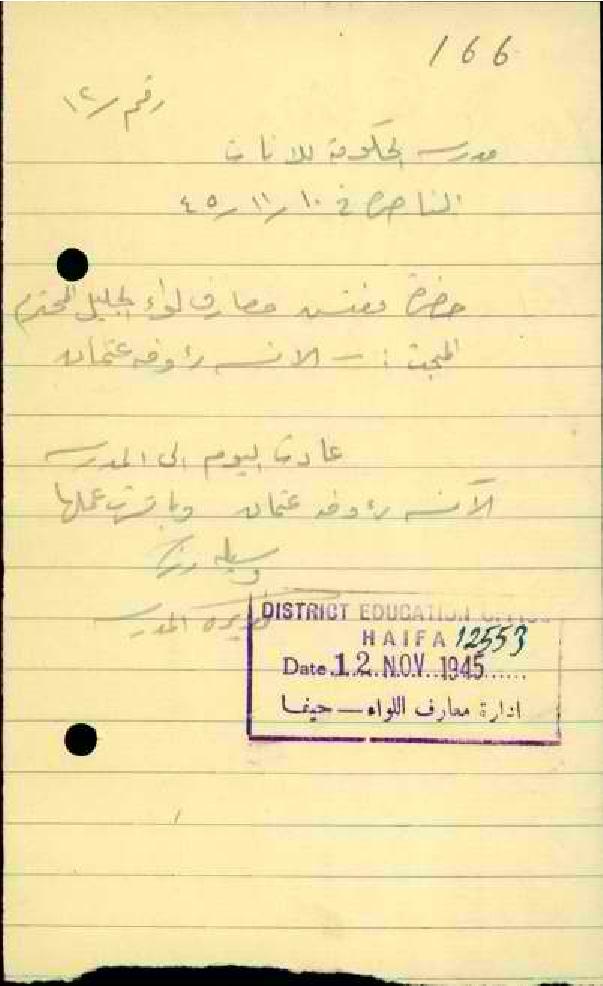 166
رقم /١٢
مدرسة الحكومة للاناث
الناصرة في ١٠/١١/٤٥
حضرة مفتش معارف لواء الجليل المحترم
المبحث :- الانسه رءوفه عثمان
عادت اليوم الى المدرسه
الآنسه رءوفه عثمان وباشرت عملها
وسيله
مديرة المدرسه
DISTRICT EDUCATION OFFICE
HAIFA 12553
Date 12 NOV 1945
ادارة معارف اللواء — حيفا